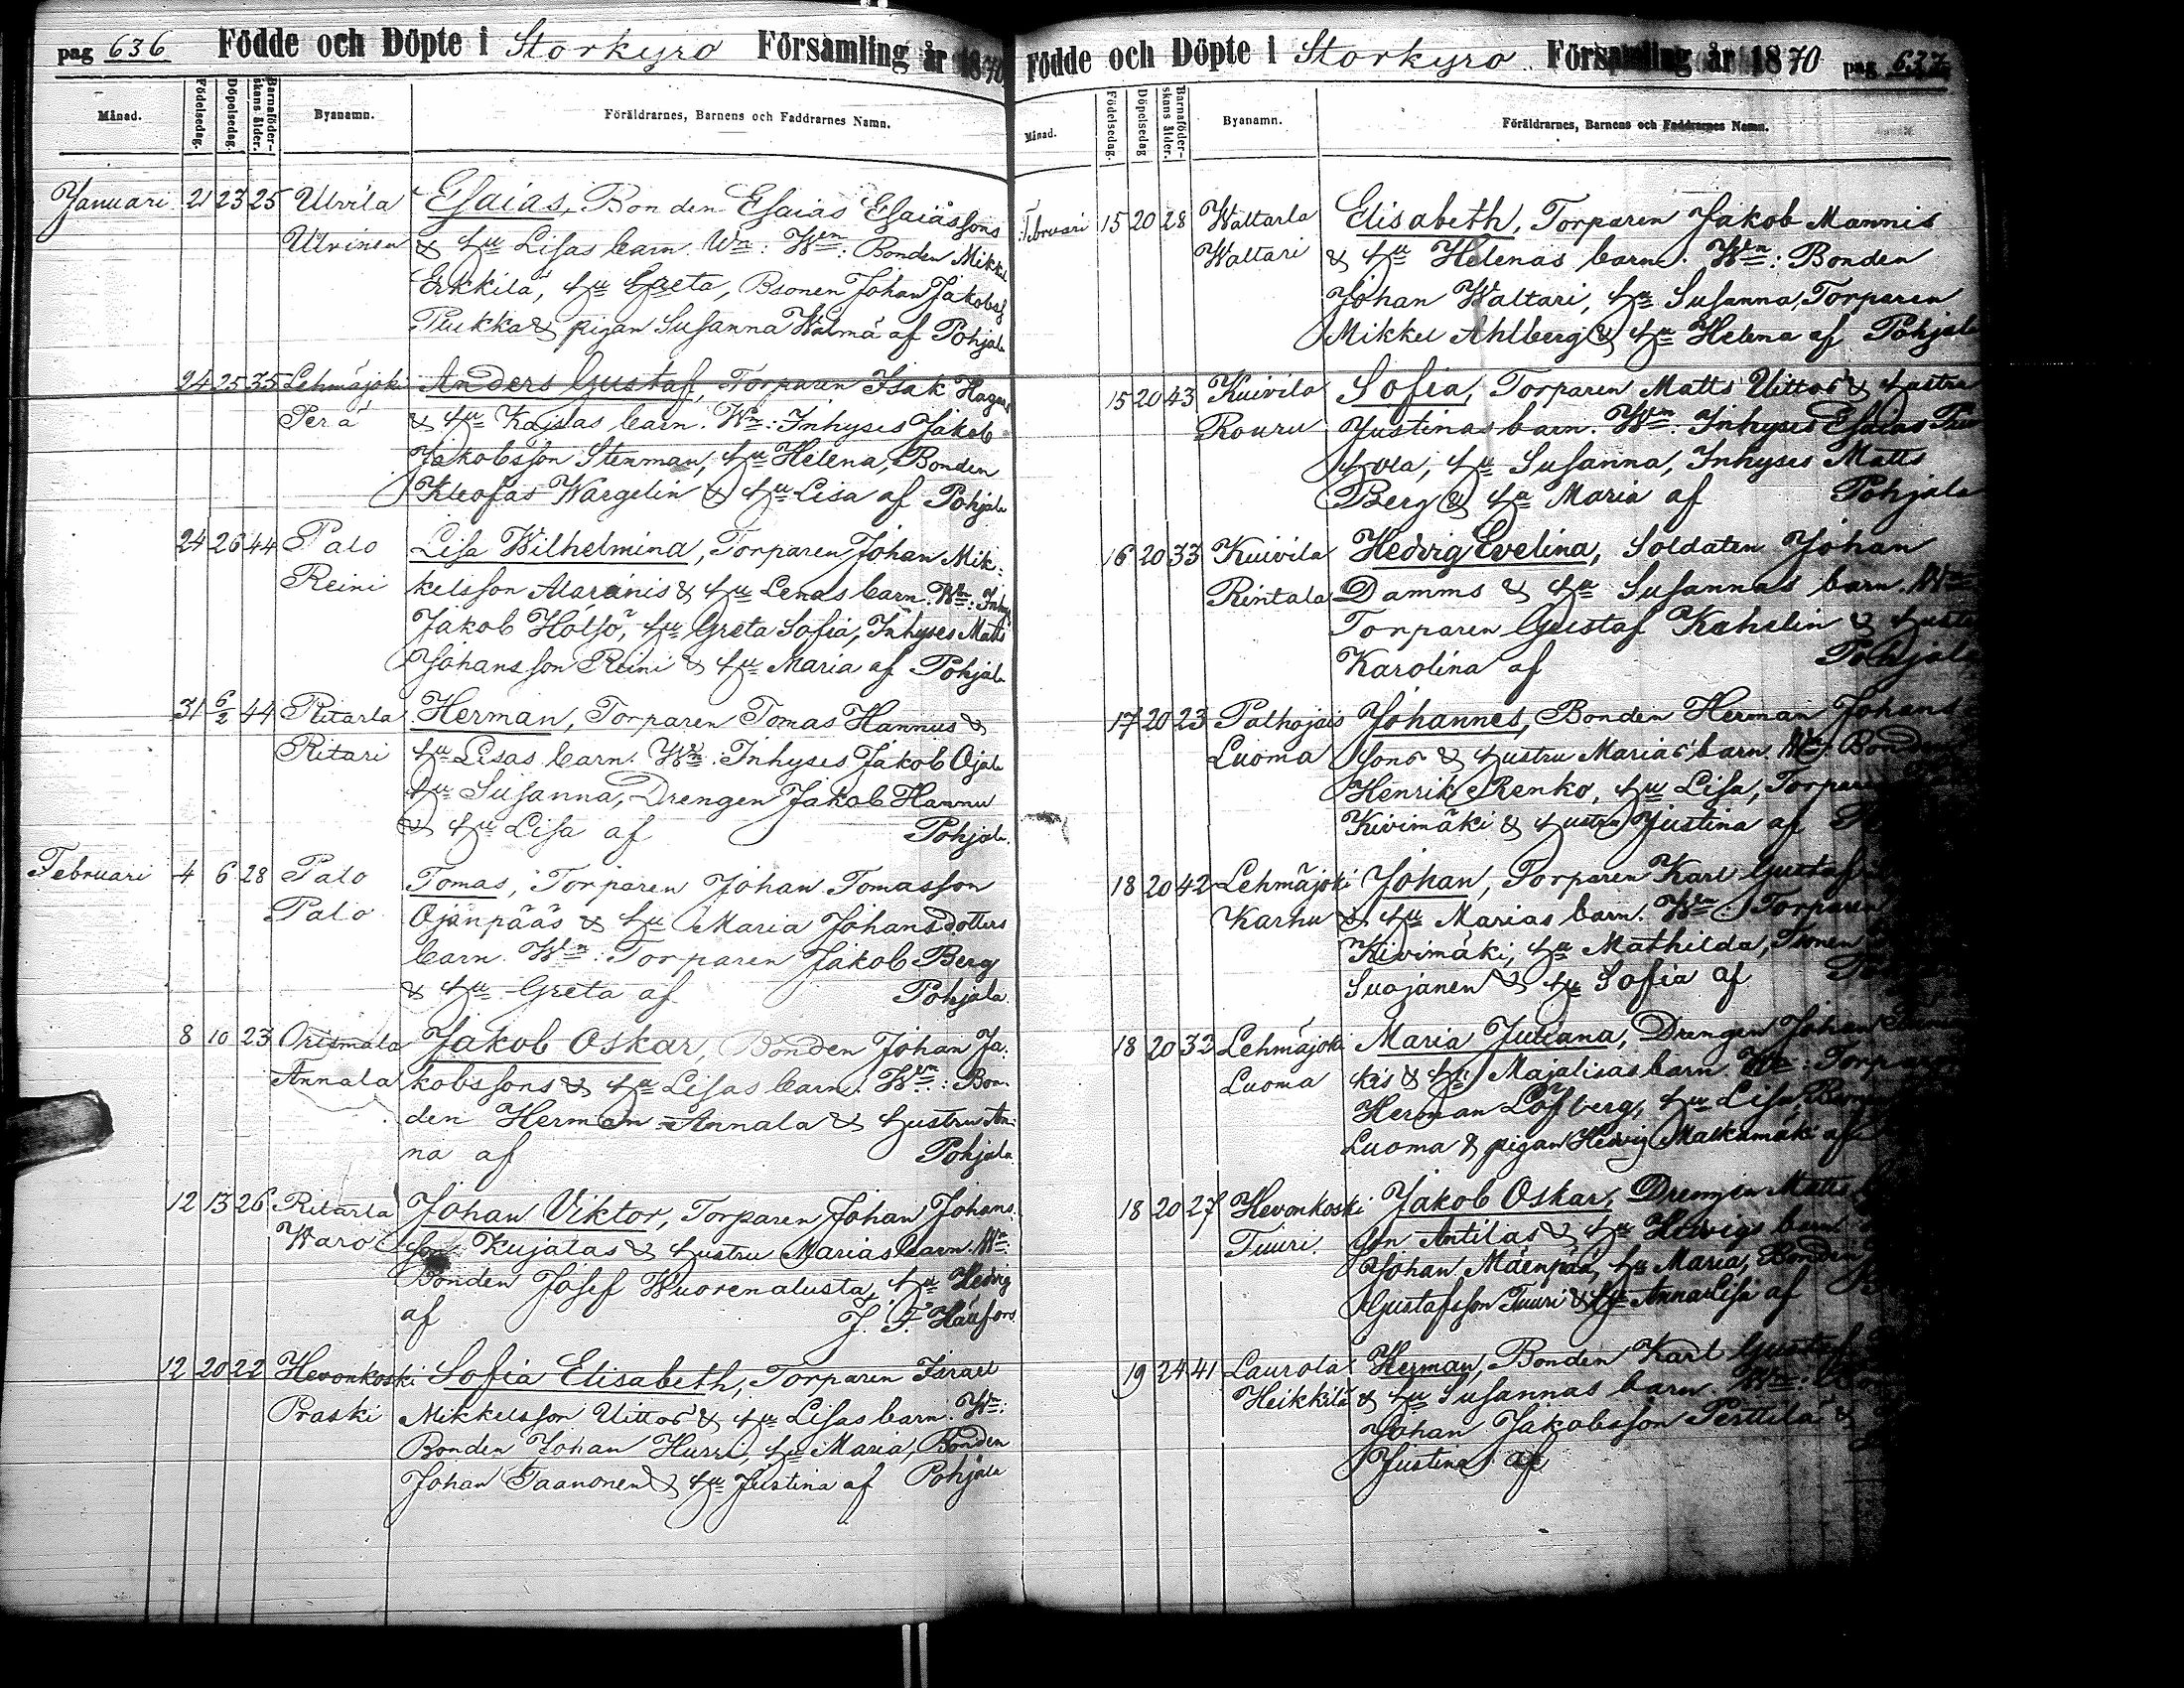 pag 636 Födde och Döpte i Storkyro Församling år 1870
Månad. Födelsedag. Döpelsedag. Barnaföderskans ålder. Byanamn. Föräldrarnes, Barnens och Faddrarnes Namn.
Januari 21 23 25 Ulvila Esaias, Bonden Esaias Esaiassons
Ulvinen & hu Lisas barn. Wn: Wem: Bonden Mikkel
Erkkilä, hu Greta, Bsonen Johan Jakobss
Pukka & pigan Susanna Wälmä af Pohjala
24 25 35 Lehmäjoki Anders Gustaf, Torparen Isak Hagas
Perä & hu Kajsas barn. Wn: Inhyses Jakob
Jakobsson Stenman, hu Helena, Bonden
Kleofas Wargelin & hu Lisa af Pohjala
24 26 44 Palo Lisa Wilhelmina, Torparen Johan Mik-
Reini kelsson Alaranis & hu Lenas barn. Wn: Inhys
Jakob Holsö, hu Greta Sofia, Inhyses Matts
Johansson Reini & hu Maria af Pohjala
31 6/2 44 Ritarla Herman, Torparen Tomas Hannus &
Ritari hu Lisas barn. Wn: Inhyses Jakob Ojala
hu Susanna, Drengen Jakob Hannu
& hu Lisa af Pohjala.
Februari 4 6 28 Palo Tomas, Torparen Johan Tomasson
Palo Ojanpääs & hu Maria Johansdotters
barn. Wn: Torparen Jakob Berg
& hu Greta af Pohjala.
8 10 23 Orismala Jakob Oskar, Bonden Johan Ja-
Annala kobssons & hu Lisas barn. Wem: Bon-
den Herman Annala & hustru An-
na af Pohjala.
12 13 26 Ritarla Johan Viktor, Torparen Johan Johans-
Waro son Kujalas & hustru Marias barn. Wn:
Bonden Josef Wuorenalusta, hu Hedvig
af J. F. Hällfors.
12 20 22 Hevonkoski Sofia Elisabeth, Torparen Israel
Praski Mikkelsson Uittos & hu Lisas barn. Wn:
Bonden Johan Hurri, hu Maria, Bonden
Johan Taanonen & hu Justina af Pohjala
Födde och Döpte i Storkyro Församling år 1870 pag 637
Månad. Födelsedag. Döpelsedag Barnaföderskans ålder. Byanamn. Föräldrarnes, Barnens och Faddrarnes Namn.
Februari 15 20 28 Waltarla Elisabeth, Torparen Jakob Mannis
Waltari & hu Helenas barn. Wn: Bonden
Johan Waltari, hu Susanna, Torparen
Mikkel Ahlberg & hu Helena af Pohjala
15 20 43 Kuivila Sofia, Torparen Matts Uittos & hustru
Rouru Justinas barn. Wm. Inhyses Esaias
hu Susanna, Inhyses Matts
Berg & hu Maria af Pohjala
16 20 33 Kuivila Hedvig Evelina, Soldaten Johan
Rintala Damms & hu Susannas barn. Wn
Torparen Gustaf Kahelin & hustru
Karolina af Pohjala
17 20 23 Palhojais Johannes, Bonden Herman Johans
Luoma sons & hustru Marias barn. Wn: Bonden
Henrik Renko, hu Lisa, Torparen
Kivimäki & hustru Justina af
18 20 42 Lehmäjoki Johan, Torparen Karl Gustaf
Karhu & hu Marias barn. Wn: Torparen
Kivimäki, hu Mathilda, Tsonen
Suojanen & hu Sofia af
18 20 33 Lehmäjoki Maria Juliana, Drengen Johan
Luoma kis & hu Majalisas barn. Wn: Torparen
Herman Löfberg, hu Lisa,
Luoma & pigan Hedvig Malkamäki af
18 20 27 Hevonkoski Jakob Oskar, Drengen Matts
Tuuri. son Antilas & hu Hedvigs barn
Johan Mäenpää, hu Maria, Bonden
Gustafsson Tuuri & hu Anna Lisa af
19 24 41 Laurola Herman, Bonden Karl Gustaf
Heikkilä & hu Susannas barn. Wn:
Johan Jakobsson Perttilä &
Justina af